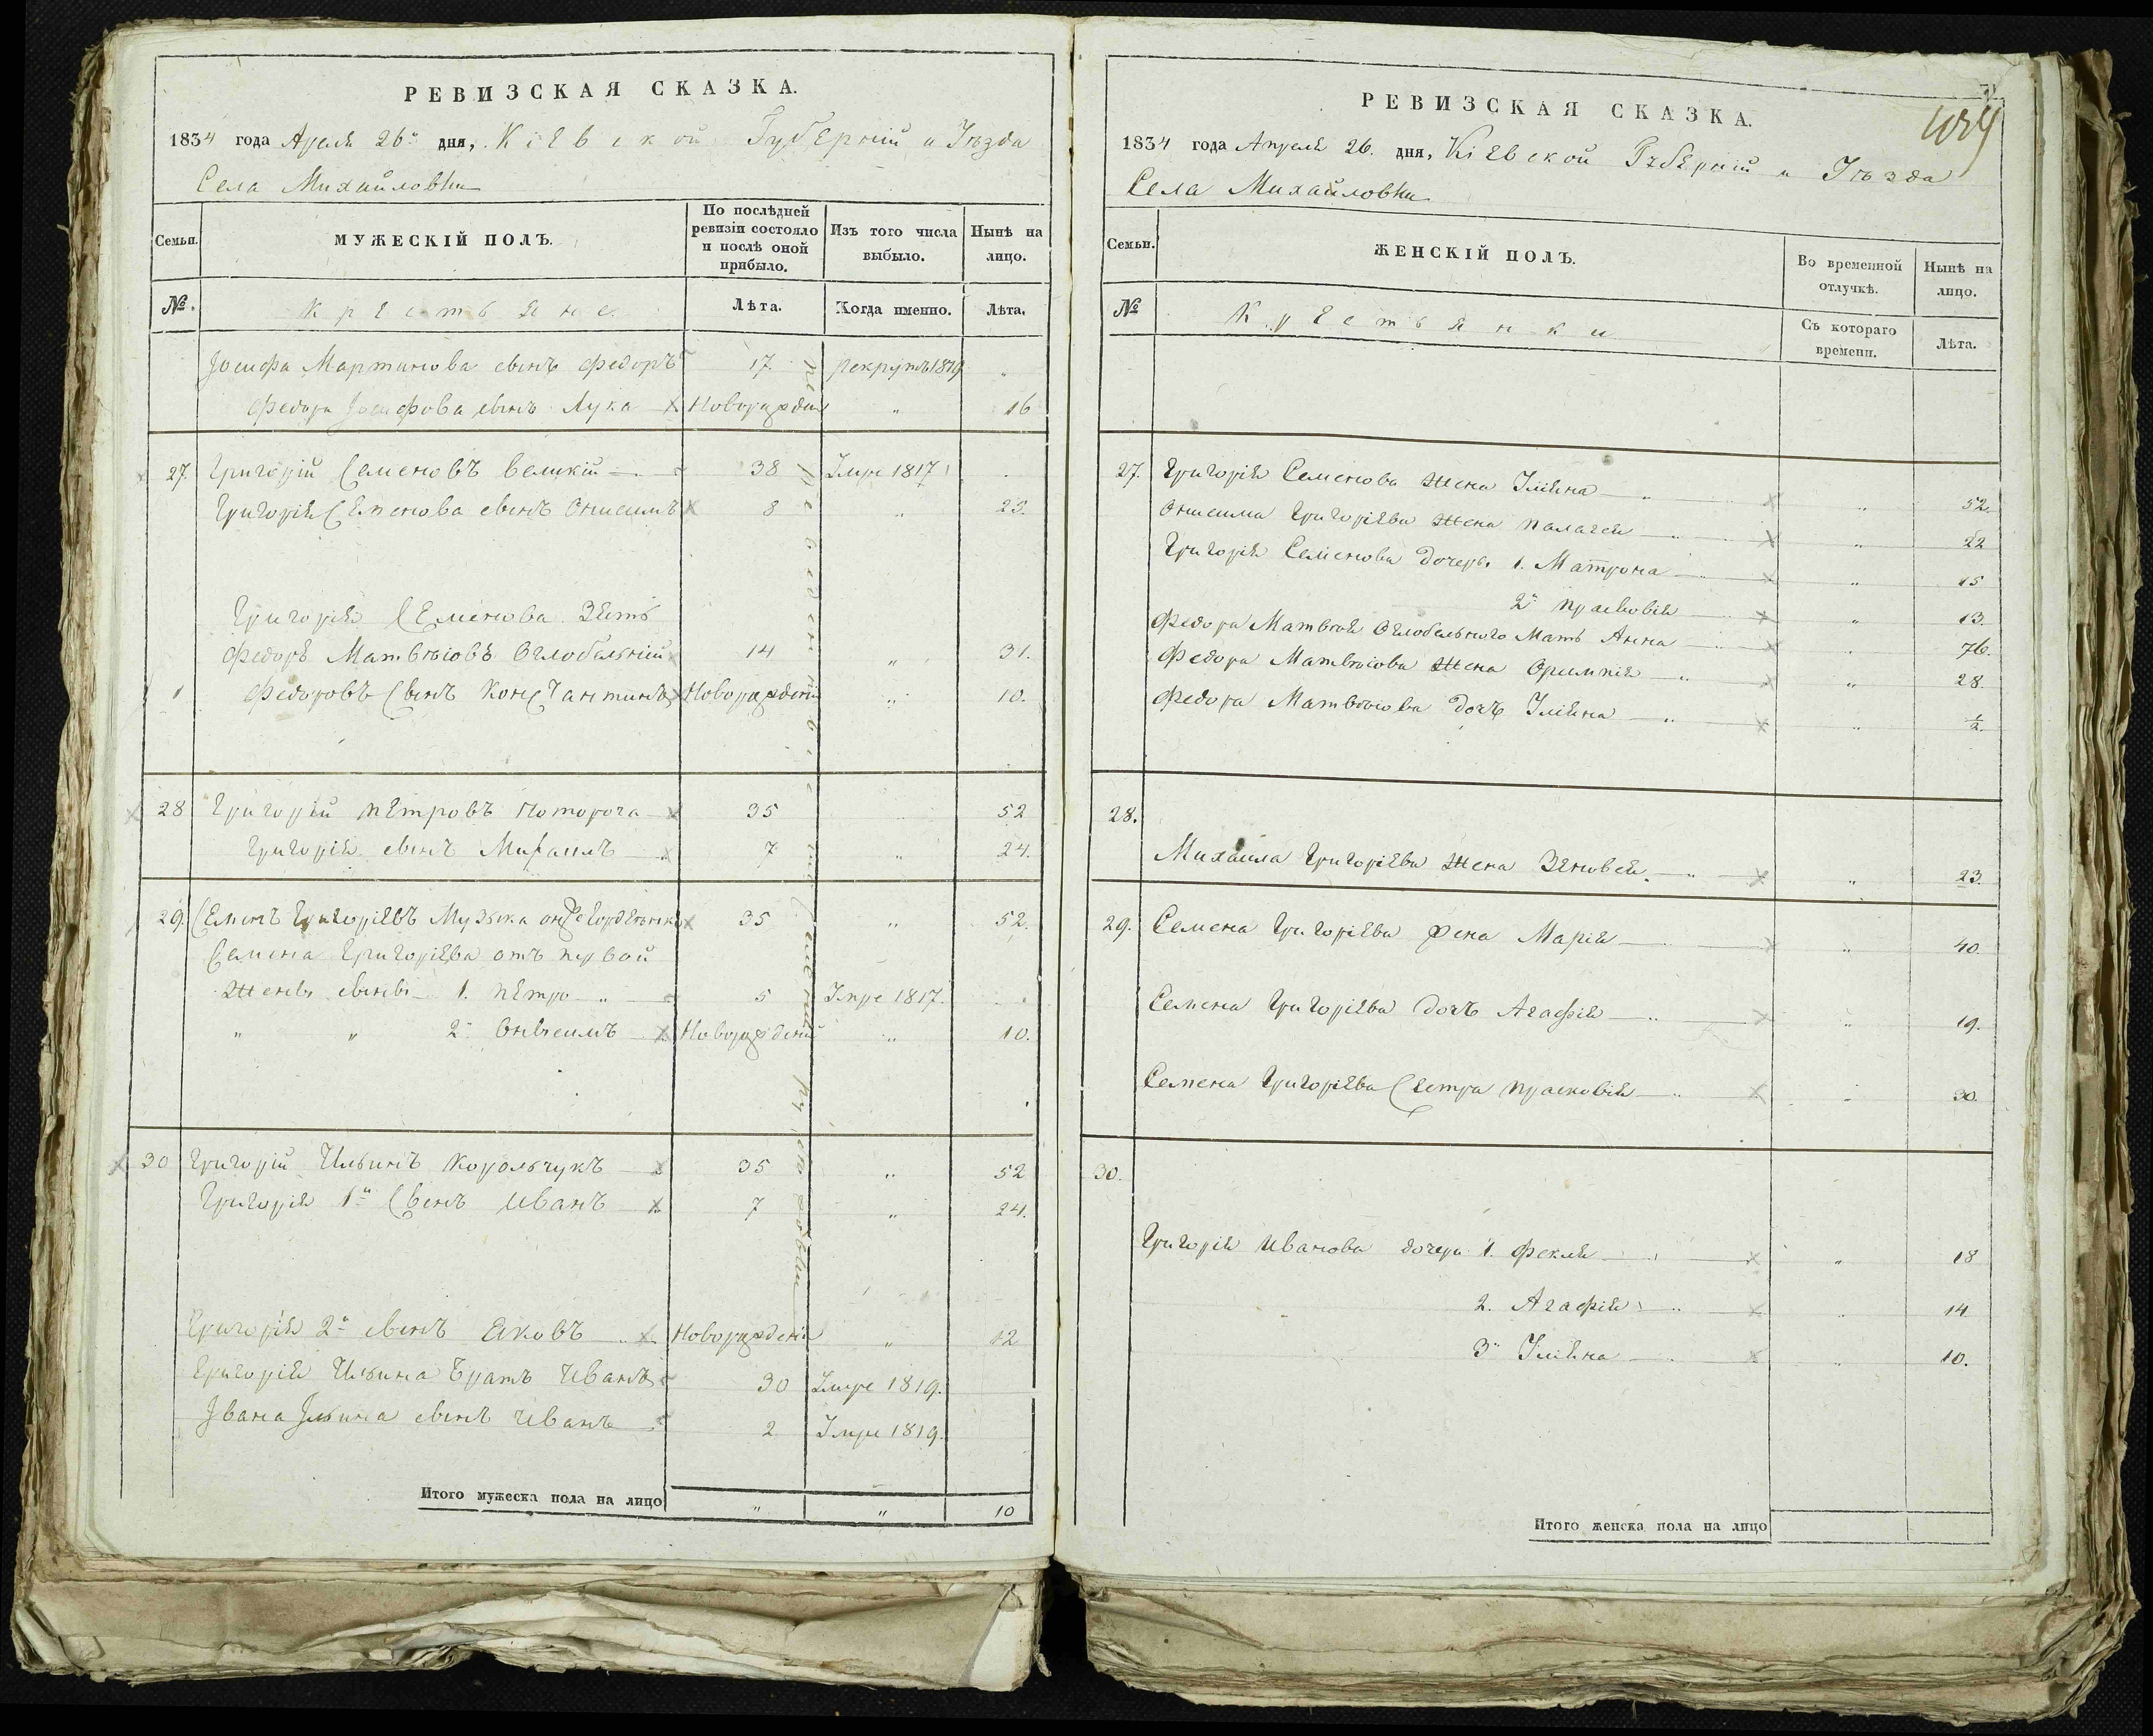 РЕВИЗСКАЯ СКАЗКА.
1834 года Апреля 26го дня, Кіевской Губерніи и Уѣзда
Села Михайловки
Семьи.
МУЖЕСКІЙ ПОЛЪ.
По послѣдней ревизіи состояло и послѣ оной прибыло.
Изъ того числа выбыло.
Нынѣ на лицо.
№.
Крестьяне
Лѣта.
Когда именно.
Лѣта.
Іосифа Мартинова сынъ Федоръ 17. рекрутъ 1819 "
Федора Іосифова сынъ Лука Новорожден " 16
27. Григорій Семеновъ Великій 38 Умре 1817 "
Григорія Семенова сынъ Онисимъ 8 " 23.
Григорія Семенова Зять
Федоръ Матвѣіовъ Оглобельній 14 " 31.
1 Федоровъ Сынъ Константинъ Новорожденій " 10.
28 Григорій Петровъ Потороча 35 52
Григорія сынъ Михаилъ 7 " 24.
29. Семенъ Григоріевъ Музыка 35 " 52.
Семена Григоріева отъ первой
жены сыны 1. Петро 5 Умре 1817.
" " 2й Онисимъ Новорожденій " 10.
30 Григорій Ильинъ Корольчукъ 35 " 52
Григорія 1й Сынъ Иванъ 7 " 24.
Григорія 2й сынъ Яковъ Новорожденій " 12
Григорія Ильина Братъ Иванъ 30 Умре 1819.
Івана Ильина сынъ Иванъ 2 Умре 1819.
Итого мужеска пола на лицо " " 10
РЕВИЗСКАЯ СКАЗКА.
1834 года Апреля 26. дня, Кіевской Губерніи и Уѣзда
Села Михайловки
Семьи.
ЖЕНСКІЙ ПОЛЪ.
Во временной отлучкѣ.
Нынѣ на лицо.
№
Крестьянки
Съ котораго времени.
Лѣта.
27. Григорія Семенова жена Уліяна " 52.
Онисима Григоріева жена Палагея " 22
Григорія Семенова дочери 1. Матрона " 15
2я Прасковія " 13.
Федора Матвѣя Оглобельного Мать Анна " 76.
Федора Матвѣіова жена ОриMпія " 28.
Федора Матвѣіова дочъ Уліяна " ½.
28.
Михаила Григоріева жена Зѣновея " 23.
29. Семена Григоріева жена Марія " 40.
Семена Григоріева дочъ Агафія " 19.
Семена Григоріева Сестра Прасковія " 30.
30.
Григорія Иванова дочери 1. Фекля " 18
2. Агафія " 14
3я Уліяна " 10.
Итого женска пола на лицо